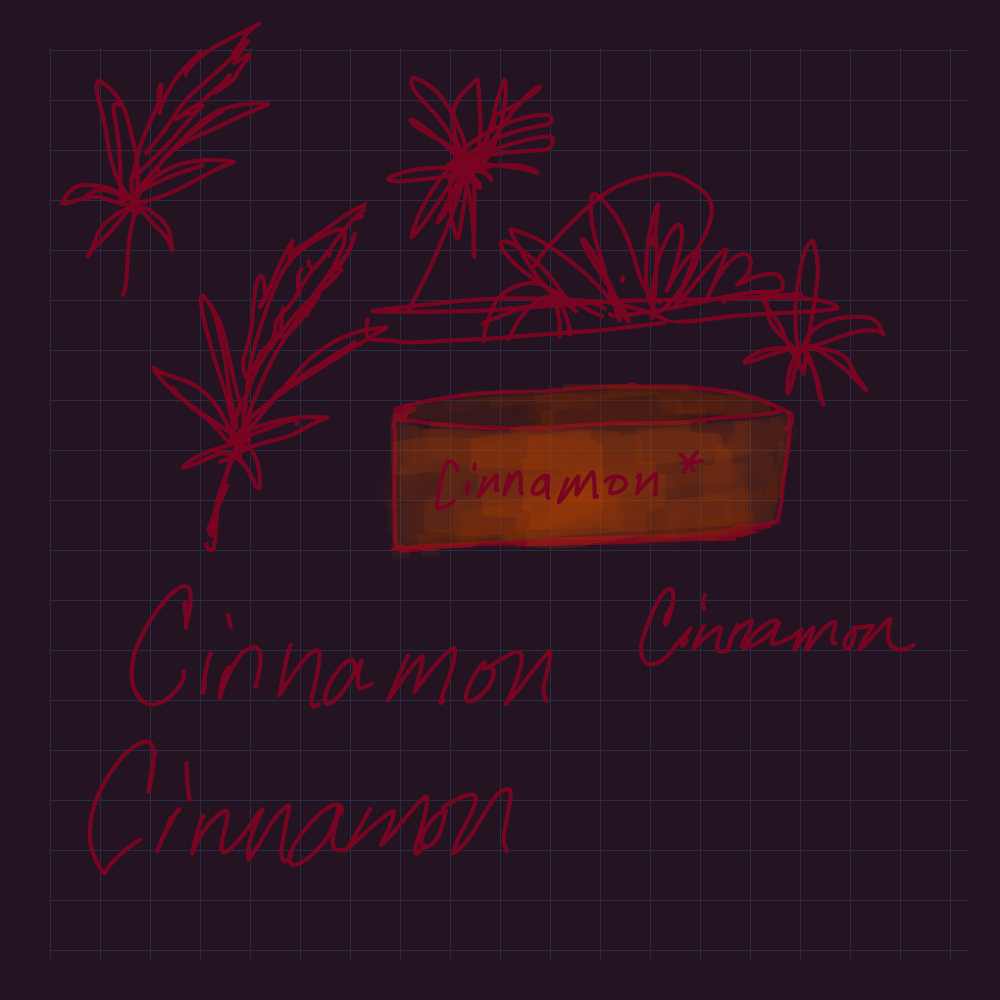 Cinnamon *
Cinnamon
Cinnamon
Cinnamon